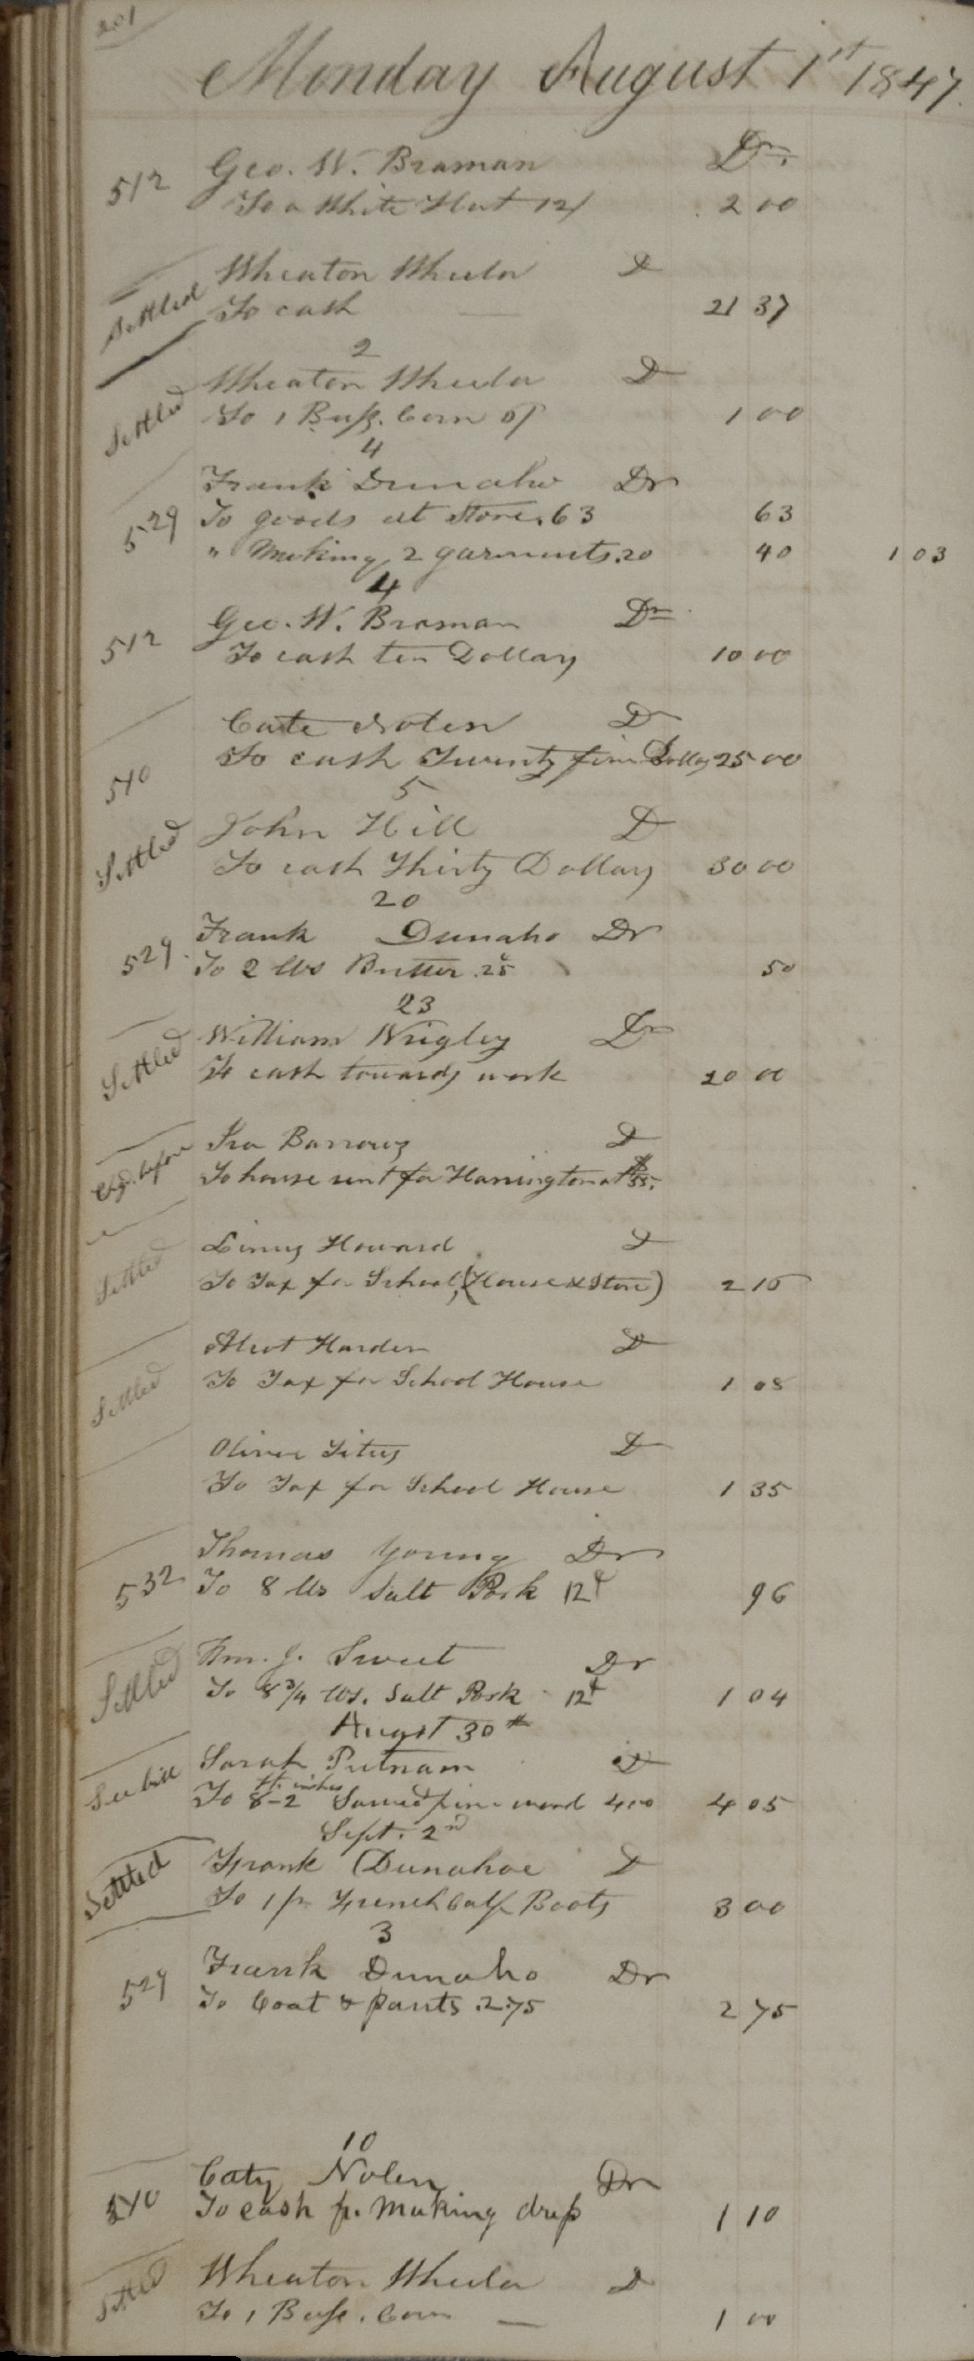 201
Monday August 1st 1847.
512 Geo. W. Braman Dr.
To a White Hat 12/ 2 00
Wheaton Wheeler D
Settled To cash — 21 37
2
Wheaton Wheeler D
Settled To 1 Bush. Corn 1 00
4
Frank Dunaho Dr
529 To goods at Store. 63 63
" Making 2 garments. 20 40 1 03
4
512 Geo. W. Braman Dr
To cash ten Dollars 10 00
Cate Nolen D
540 To cash Twenty five Dollars 25 00
5
Settled John Hill D
To cash Thirty Dollars 30 00
20
529. Frank Dunaho Dr
To 2 lbs Butter .25 50
23
Settled William Wrigley Dr
To cash towards work 20 00
Chgd. before Ira Barrows D
To house rent for Harrington at $35.
Linus Howard D
Settled To Tax for School, (House & Store) 2 16
Harden D
Settled To Tax for School House 1 08
Oliver Titus D
To Tax for School House 1 35
Thomas Young Dr
532 To 8 lbs Salt Pork 12¢ 96
Wm. J. Sweet Dr
Settled To 8 3/4 lbs. Salt Pork 12¢ 1 04
August 30th
See bill Sarah Putnam D
ft. inches
To 8-2 Sawed pine wood 4.00 4 05
Sept. 2nd
Settled Frank Dunahoe D
To 1 pr French Calf Boots 3 00
3
529 Frank Dunaho Dr
To Coat & pants .2.75 2 75
10
Caty Nolen Dr
540 To cash p. Making dress 1 10
Settled Wheaton Wheeler D
To 1 Bush. Corn — 1 00